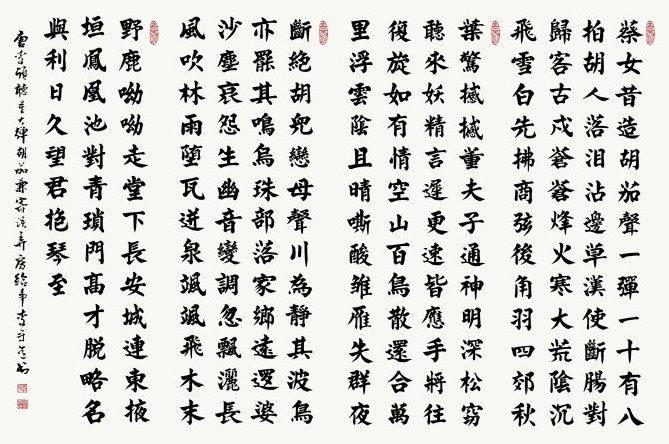 蔡女昔造胡笳聲一彈一十有八
拍胡人落泪沾邊草漢使斷腸對
歸客古戍蒼蒼烽火寒大荒陰沉
飛雪白先拂商弦後角羽四郊秋
葉驚撼撼董夫子通神明深松竊
聽來妖精言遲更速皆應手將往
復旋如有情空山百鳥散還合萬
里浮雲陰且晴嘶酸雛雁失群夜
斷絕胡兒戀母聲川為靜其波鳥
亦罷其鳴烏珠部落家鄉遠邏婆
沙塵哀怨生幽音變調忽飄灑長
風吹林雨墮瓦迸泉颯颯飛木末
野鹿呦呦走堂下長安城連東掖
垣鳳凰池對青瑣門高才脫略名
與利日久望君抱琴至
唐李頎聽董大彈胡笳兼寄語弄房給事李守